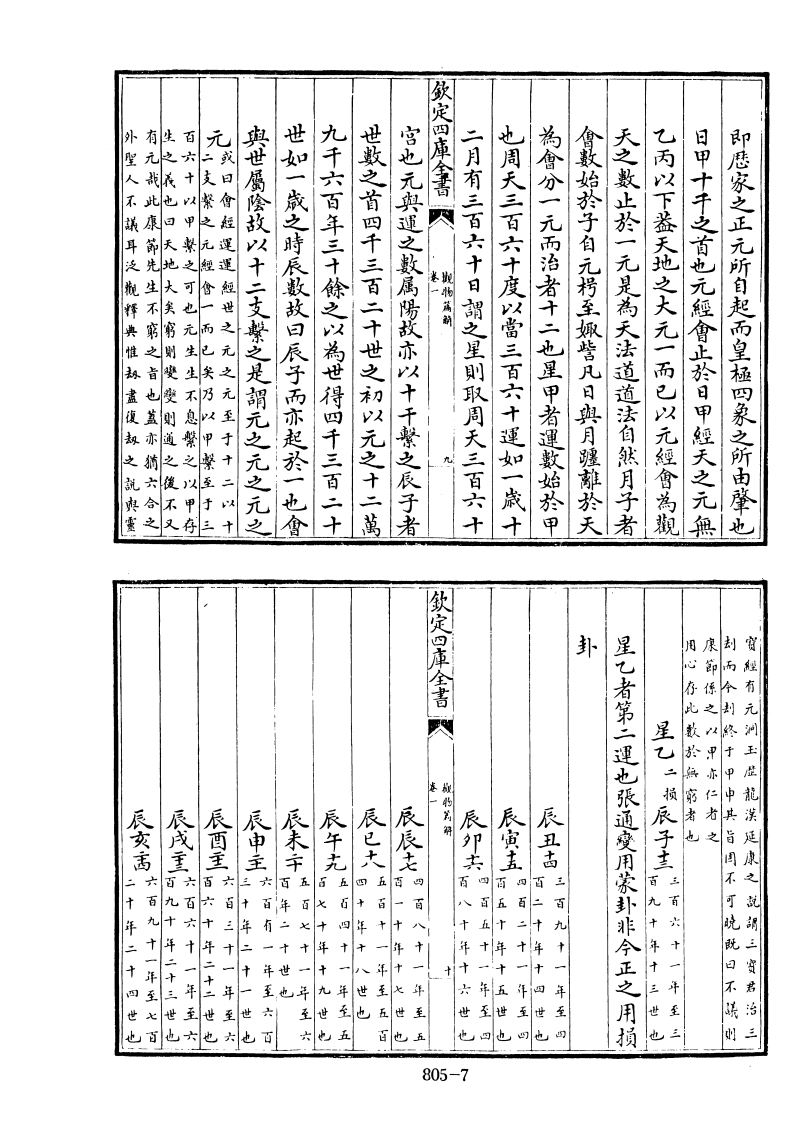 即歴家之正元所自起而皇極四象之所由肇也
日甲十干之首也元經會止於日甲經天之元無
乙丙以下葢天地之大元一而已以元經會為觀
天之數止於一元是為天法道道法自然月子者
會數始於子自元枵至娵訾凡日與月躔離於天
為會分一元而治者十二也星甲者運數始於甲
也周天三百六十度以當三百六十運如一歳十
二月有三百六十日謂之星則取周天三百六十
欽定四庫全書
觀物篇解
卷一
九
宫也元與運之數屬陽故亦以十干繫之辰子者
世數之首四千三百二十世之初以元之十二萬
九千六百年三十餘之以為世得四千三百二十
世如一歳之時辰數故曰辰子而亦起於一也會
與世屬陰故以十二支繫之是謂元之元之元之
元
或曰會經運運經世之元之元至于十二以十
二支繫之元經會一而已矣乃以甲繫至于三
百六十以甲繫之可也元生生不息繫之以甲存
生之義也曰天地大矣窮則變變則通之復不又
有元哉此康節先生不窮之旨也葢亦猶六合之
外聖人不議耳泛觀釋典惟刼盡復刼之説與靈
寳經有元洞玉歴龍漢延康之説謂三寳君治三
刦而今刦終于甲申其旨固不可曉既曰不議則
康節係之以甲亦仁者之
用心存此數於無窮者也
星乙二損
辰子十三
三百六十一年至三
百九十年十三世也
星乙者第二運也張通變用蒙卦非今正之用損
卦
辰丑十四
三百九十一年至四
百二十年十四世也
辰寅十五
四百二十一年至四
百五十年十五世也
辰卯十六
四百五十一年至四
百八十年十六世也
欽定四庫全書
觀物篇解
卷一
十
辰辰十七
四百八十一年至五
百一十年十七世也
辰巳十八
五百十一年至五百
四十年十八世也
辰午十九
五百四十一年至五
百七十年十九世也
辰未二十
五百七十一年至六
百年二十世也
辰申二十一
六百有一年至六百
三十年二十一世也
辰酉二十二
六百三十一年至六
百六十年二十二世也
辰戌二十三
六百六十一年至六
百九十年二十三世也
辰亥二十四
六百九十一年至七百
二十年二十四世也
805-7